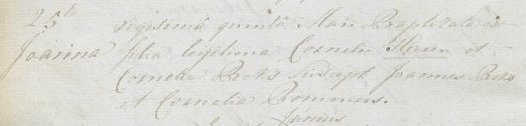 26ta vigisima quinta Maii Baptizata est
Joanna filia legitima Cornelii Heeren et
Cornelia Boks suscept Joannes Boks
et Cornelia Rommens.